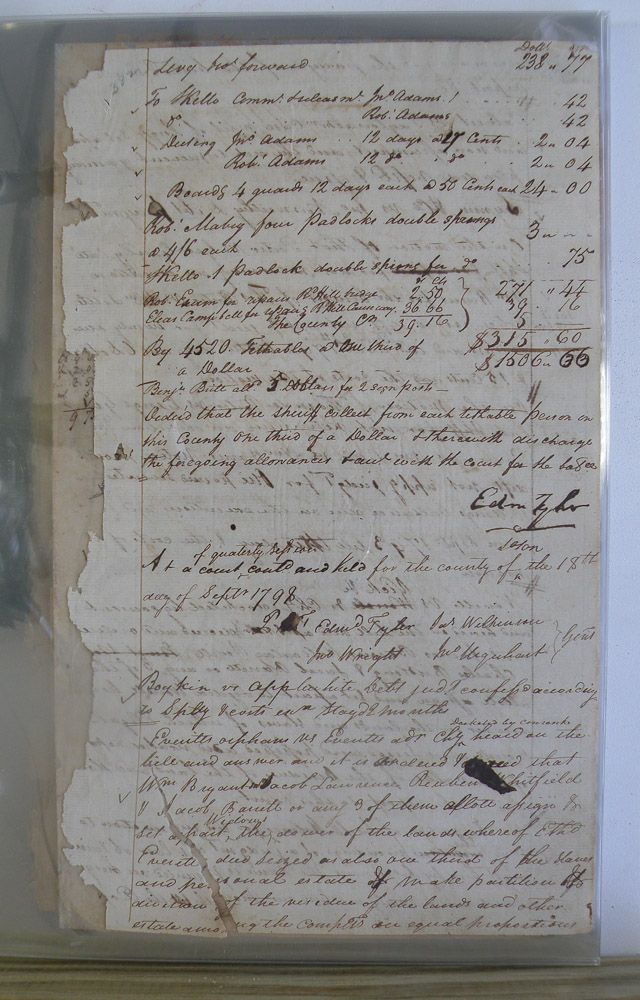 Dolls
Levy bro.t forward 238 " 77
To Skelto Comm.t & releasm.t Jn.o Adams 42
d.o Rob.t Adams 42
Dieting Jn.o Adams 12 days a 17 Cents 2 " 04
Rob.t Adams 12 d.o d.o 2 " 04
Board.g 4 guards 12 days each a 50 Cents each 24 " 00
Rob.t Mabry four Padlocks double springs
a 4/6 each 3 " "
Skelto 1 Padlock double spring for d.o 75
Rob.t for repairs bridge 2.50 271 " 44
Elias Campbell for Mill Causeway 36 66 39 " 16
The County C.r 39.16 5
$315 . 60
By 4520 Tithables a One third of $1506 " 66
a Dollar
Benj.n Britt all.d 5 Dollars for 2 sign posts
Orderd that the sheriff collect from each tithable person in
this County One third of a Dollar & therewith discharge
the foregoing allowances & acc.t with the court for the ba
Edm Tyler
of quarterly Sessions
At a court cont.d and held for the county of the 18th
day of Sept.r 1798
Edw.d Tyler Ja.s Wilkinson
Jn.o Wright Jn.o Urquhart Gent
Boykin vs Applewhite Debt jud.t confessd according
to Sp.lty & costs stay d 2 months
Docketed by consent
Everitts orphans vs Everitts adr Ch.y heard on the
bill and answer and it is ordered that
W.m Bryant Jacob Lawrence Reuben Whitfield
& Jacob Barrett or any 3 of them allott assign &
Widows
set apart the dower of the lands whereof Eth.d
Everitt died seized as also one third of the slaves
and personal estate & make partition &
division of the residue of the lands and other
estate among the Compl.ts in equal proportions